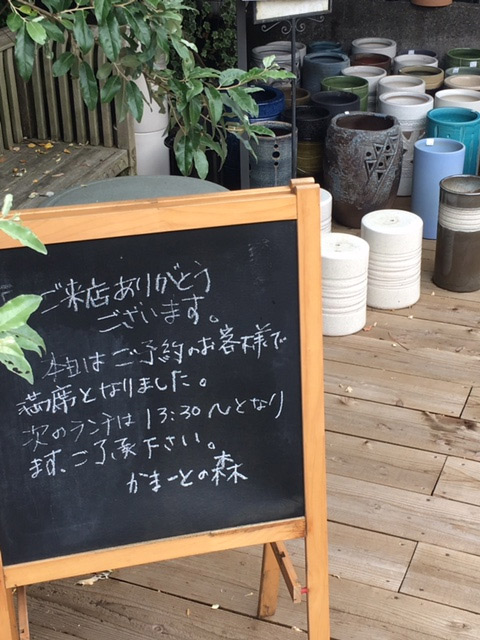 ご来店ありがとう
ございます。
本日はご予約のお客様で
満席となりました。
次のランチは13:30〜となり
ます、ご了承下さい。
かまーとの森